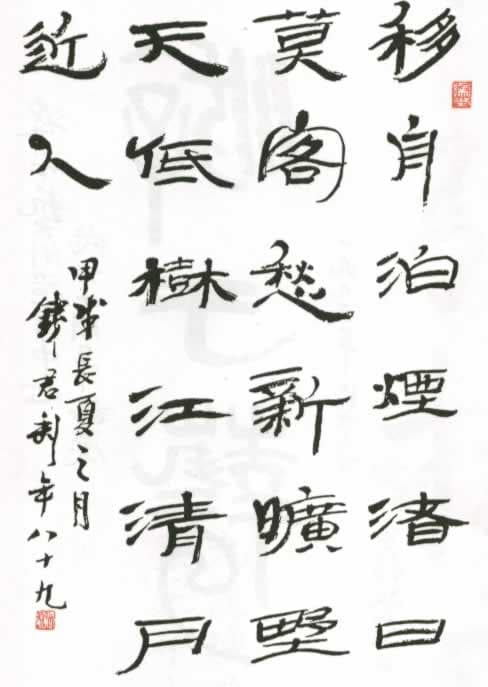 移舟泊煙渚日
莫客愁新曠野
天低樹江清月
近人
甲戌長夏之月
錢君匋年八十九